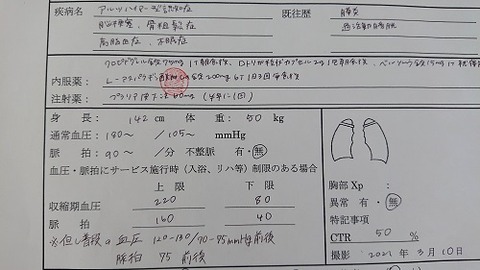 疾病名
アルツハイマー型認知症
脳梗塞、骨粗鬆症
高脂血症、不眠症
既往歴
膵炎
過活動膀胱
内服薬:
クロピドグレル錠75mg 1T朝食後、
L-アスパラギン酸Ca錠200mg 6T 1日3回毎食後
注射薬:
プラリア皮下注60mg(半年に1回)
身長: 142 cm 体重: 50 kg
通常血圧: 180~ /105~ mmHg
脈拍: 90~ /分 不整脈 有・無
血圧・脈拍にサービス施行時(入浴、リハ等)制限のある場合
上限 下限
収縮期血圧 220 80
脈拍 160 40
※但し普段の血圧 120-130/70-75mmHg前後
脈拍 75 前後
胸部 Xp :
異常 有・無
特記事項
CTR 50 %
撮影 2021年 3月10日